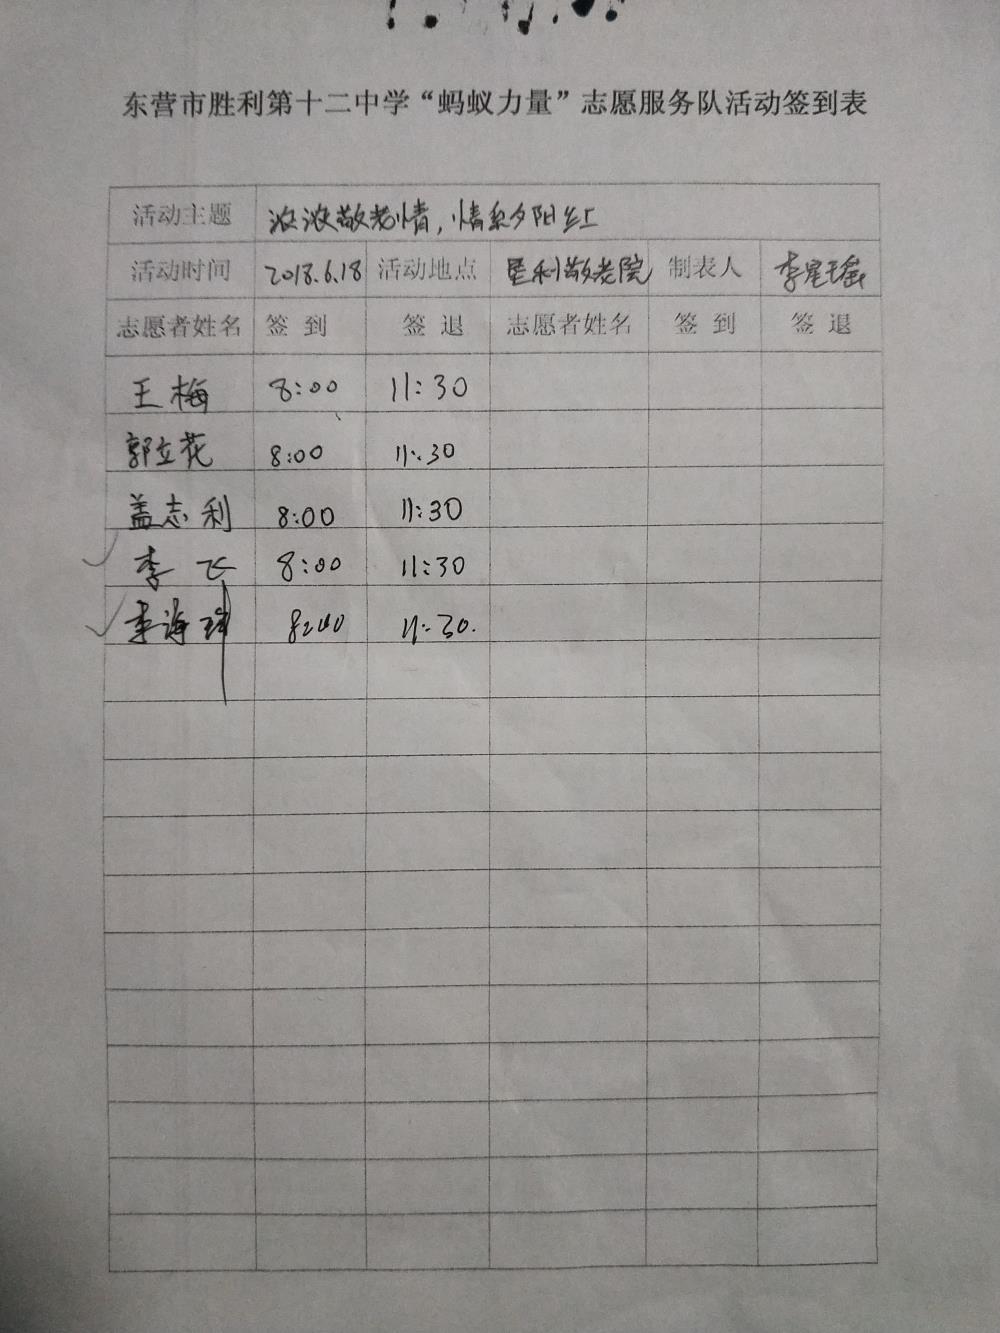 东营市胜利第十二中学“蚂蚁力量”志愿服务队活动签到表
活动主题 浓浓敬老情,情系夕阳红
活动时间 2018.6.18 活动地点 垦利敬老院 制表人 李
志愿者姓名 签 到 签 退 志愿者姓名 签 到 签 退
王梅 8:00 11:30
郭立花 8:00 11:30
盖志利 8:00 11:30
李飞 8:00 11:30
李海 8:00 11:30.